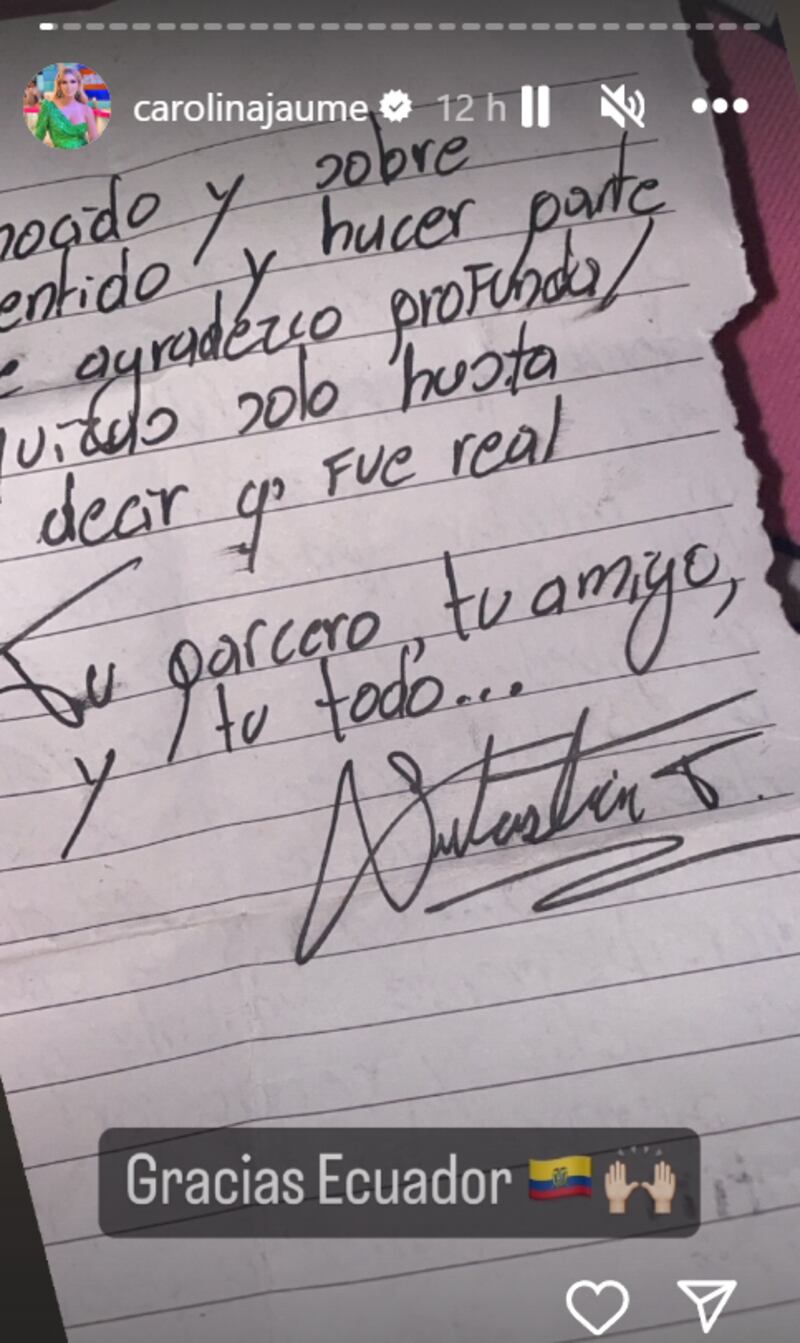 carolinajaume 12 h
nocido y sobre
entido y hacer parte
e agradezco profunda/
solo hasta
decir q' fue real
Tu parcero, tu amigo,
y tu todo...
Gracias Ecuador 🇪🇨 🙌🏻